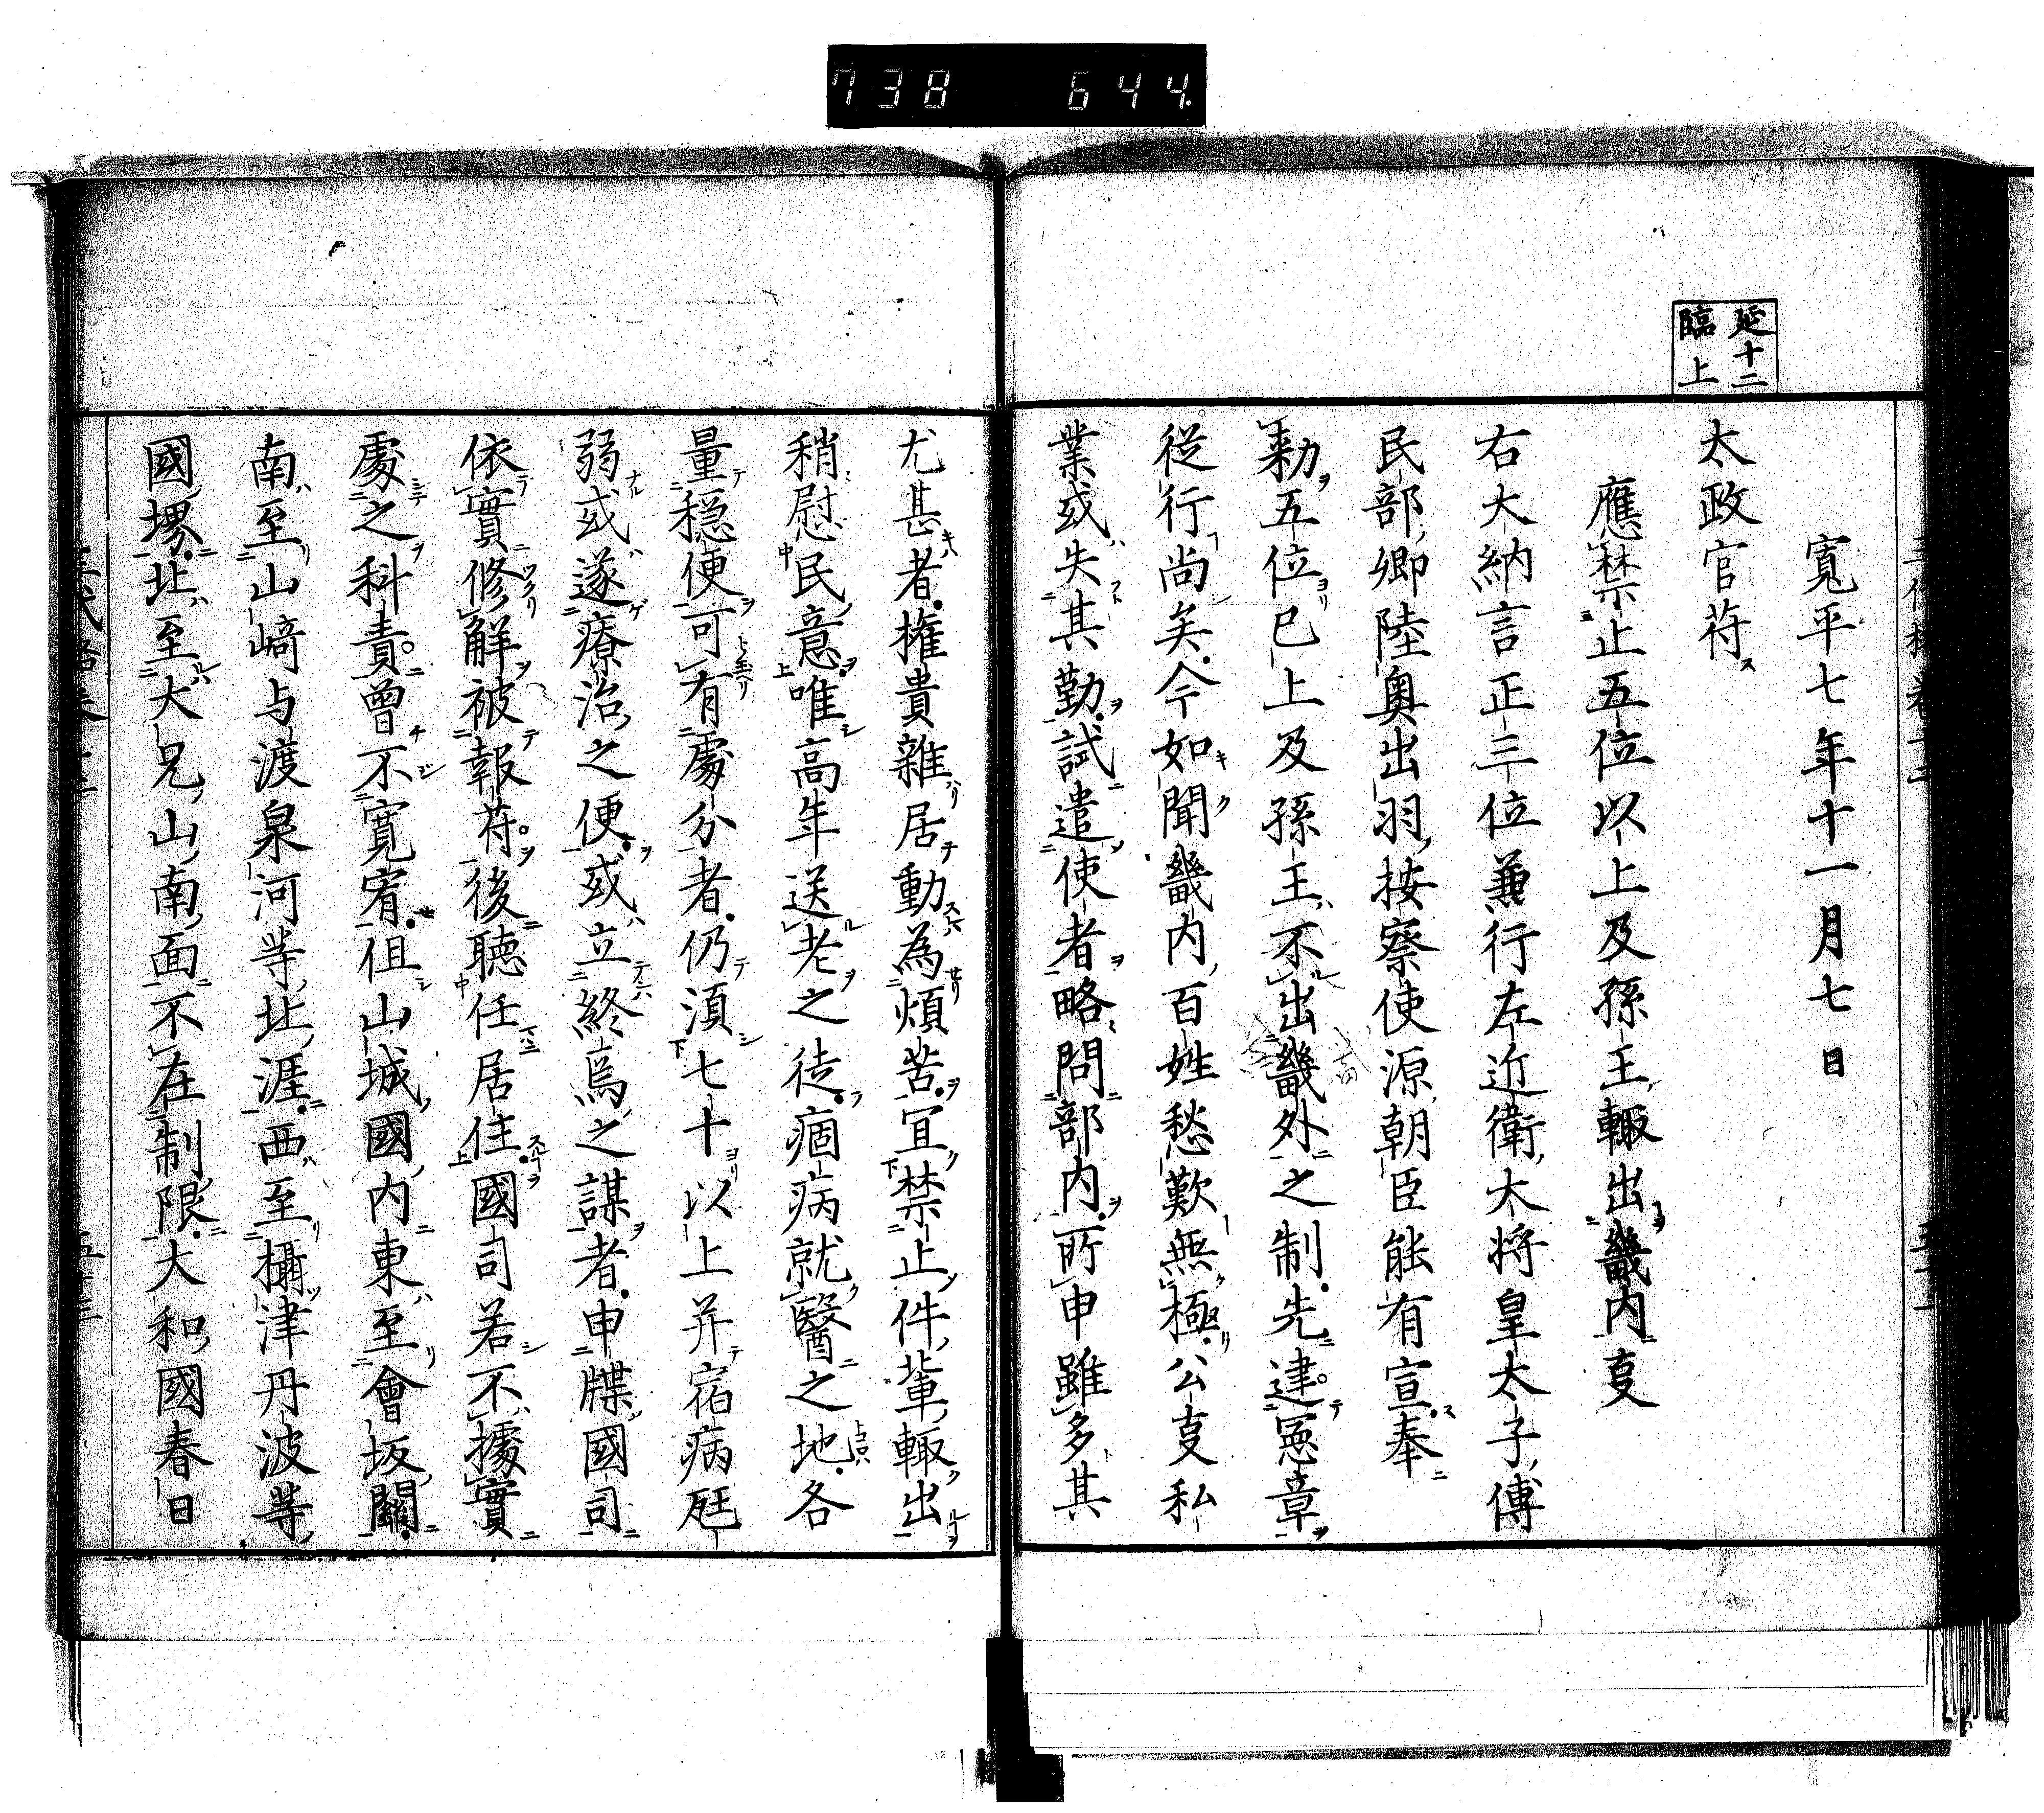 738 644.
延十二
臨上
寛平七年十一月七日
太政官符
應禁止五位以上及孫王輙出畿内叓
右大納言正三位兼行左近衛大将皇太子傅
民部卿陸奥出羽按察使源朝臣能有宣奉
勅五位已上及孫王不出畿外之制先建憲章
從行尚矣今如聞畿内百姓愁歎無極公叓私
業或失其勤試遣使者略問部内所申雖多其
尤甚者権貴雜居動為煩苦冝禁止件輩輙出
稍慰民意唯高年送老之徒痼病就醫之地各
量穏便可有處分者仍湏七十以上并宿病尫
弱或遂療治之便或立終焉之謀者申牒國司
依實修解被報符後聴任居住國司若不據實
處之科責曾不寛宥但山城國内東至會坂關
南至山﨑与渡泉河等北涯西至攝津丹波等
國堺北至大兄山南面不在制限大和國春日